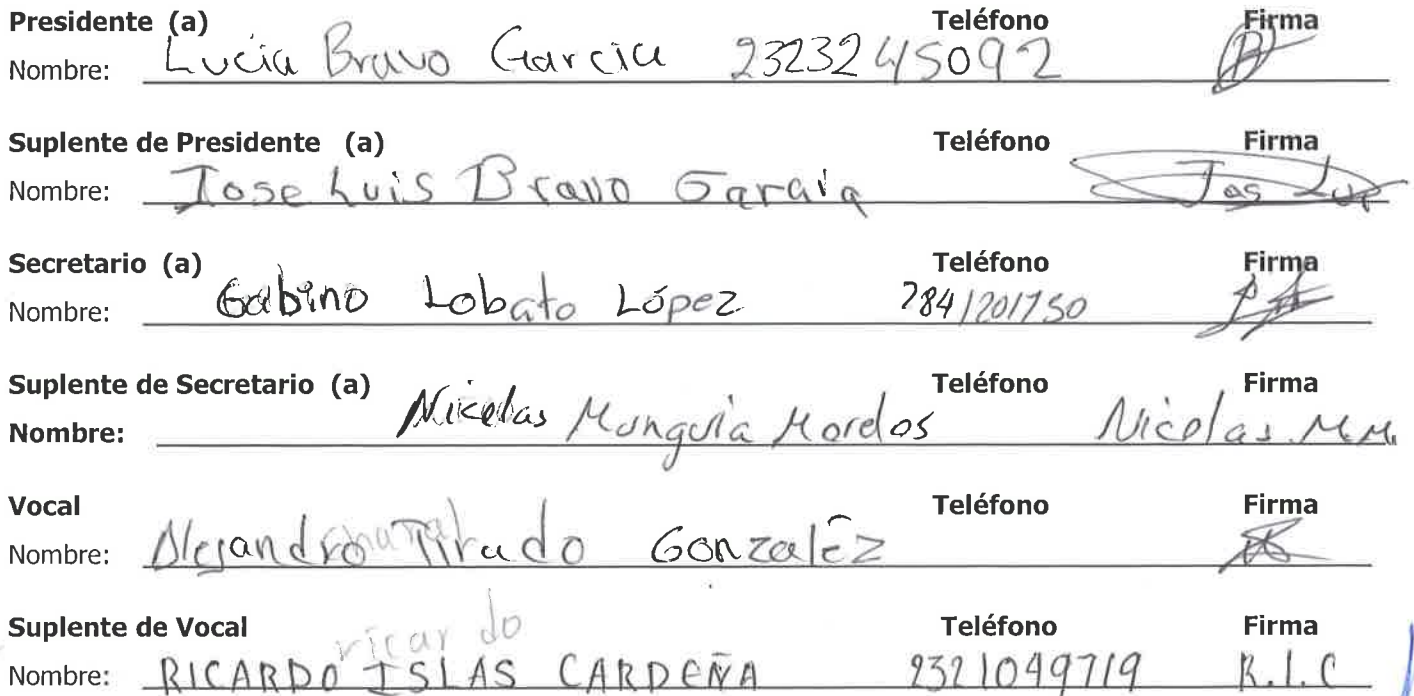 Presidente (a) Teléfono Firma
Nombre: Lucia Bravo Garcia 2323245092
Suplente de Presidente (a) Teléfono Firma
Nombre: Jose Luis Bravo Garaia
Secretario (a) Teléfono Firma
Nombre: Gabino Lobato López 7841201750
Suplente de Secretario (a) Teléfono Firma
Nombre: Nicolas Munguia Morelos Nicolas M.M.
Vocal Teléfono Firma
Nombre: Alejandro Tirado Gonzaléz
Suplente de Vocal Teléfono Firma
ricardo
Nombre: RICARDO ISLAS CARDEÑA 2321049719 R.I.C